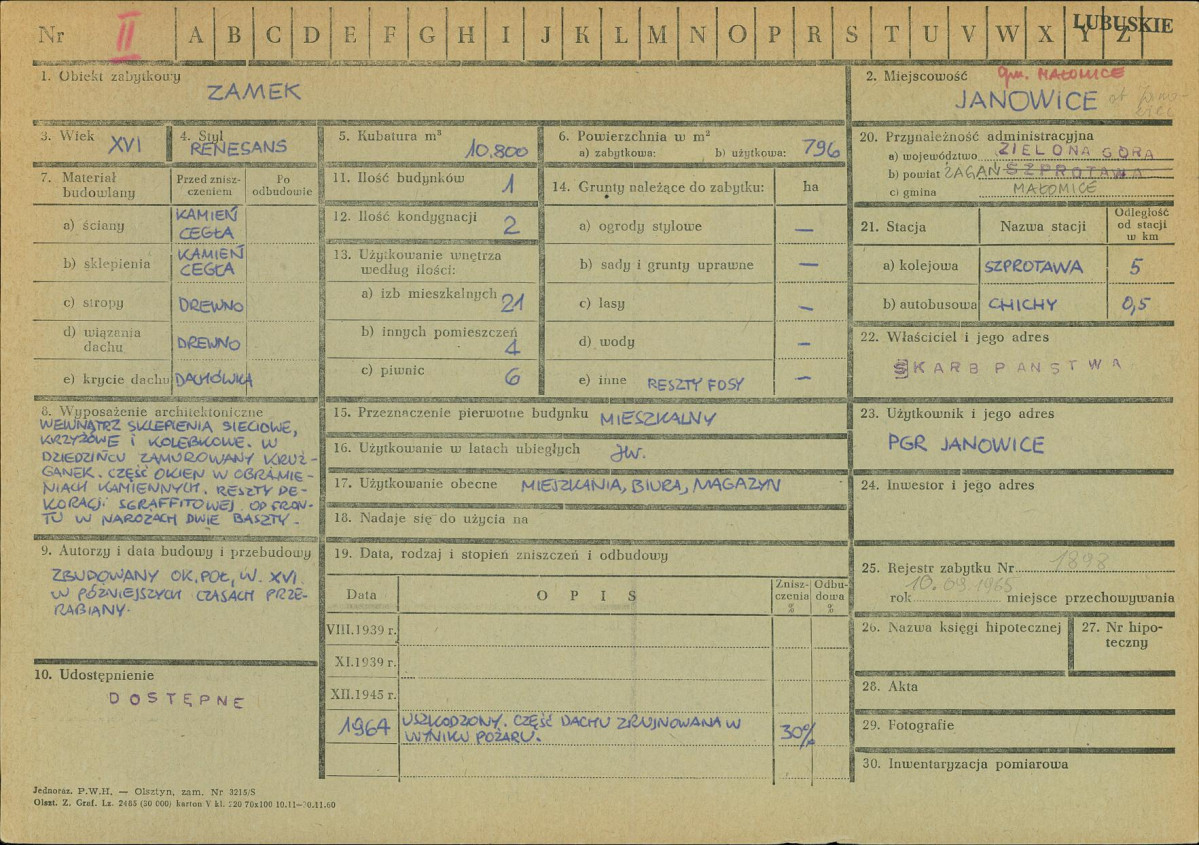 Nr II A B C D E F G H I J K L M N O P R S T U V W X Y Z
LUBUSKIE
1. Obiekt zabytkowy
ZAMEK
2. Miejscowość gm. MAŁOMICE
JANOWICE
3. Wiek XVI
4. Styl
RENESANS
5. Kubatura m³
10.800
6. Powierzchnia w m²
a) zabytkowa: b) użytkowa: 796
7. Materiał budowlany
Przed zniszczeniem
Po odbudowie
a) ściany KAMIEŃ
CEGŁA
b) sklepienia KAMIEŃ
CEGŁA
c) stropy DREWNO
d) wiązania
dachu DREWNO
e) krycie dachu DACHÓWKA
8. Wyposażenie architektoniczne
WEWNĄTRZ SKLEPIENIA SIECIOWE,
KRZYŻOWE I KOLEBKOWE. W
DZIEDZIŃCU ZAMUROWANY KRUŻ-
GANEK. CZĘŚĆ OKIEN W OBRAMIE-
NIACH KAMIENNYCH. RESZTY DE-
KORACJI SGRAFFITOWEJ. OD FRON-
TU W NAROŻACH DWIE BASZTY.
9. Autorzy i data budowy i przebudowy
ZBUDOWANY OK. POŁ. W. XVI.
W PÓŹNIEJSZYCH CZASACH PRZE-
RABIANY.
10. Udostępnienie
DOSTĘPNE
11. Ilość budynków 1
12. Ilość kondygnacji 2
13. Użytkowanie wnętrza
według ilości:
a) izb mieszkalnych 21
b) innych pomieszczeń
4
c) piwnic 6
14. Grunty należące do zabytku: ha
a) ogrody stylowe —
b) sady i grunty uprawne —
c) lasy —
d) wody —
e) inne RESZTY FOSY —
15. Przeznaczenie pierwotne budynku MIESZKALNY
16. Użytkowanie w latach ubiegłych JW.
17. Użytkowanie obecne MIESZKANIA, BIURA, MAGAZYN
18. Nadaje się do użycia na
19. Data, rodzaj i stopień zniszczeń i odbudowy
Data OPIS Zniszczenia % Odbudowa %
VIII.1939 r.
XI.1939 r.
XII.1945 r.
1964 USZKODZONY. CZĘŚĆ DACHU ZRUJNOWANA W
WYNIKU POŻARU. 30%
20. Przynależność administracyjna
a) województwo ZIELONA GÓRA
b) powiat ŻAGAŃ SZPROTAWA
c) gmina MAŁOMICE
21. Stacja Nazwa stacji Odległość
od stacji
w km
a) kolejowa SZPROTAWA 5
b) autobusowa CHICHY 0,5
22. Właściciel i jego adres
SKARB PAŃSTWA
23. Użytkownik i jego adres
PGR JANOWICE
24. Inwestor i jego adres
25. Rejestr zabytku Nr 1898
rok 10.09.1965 miejsce przechowywania
26. Nazwa księgi hipotecznej
27. Nr hipo-
teczny
28. Akta
29. Fotografie
30. Inwentaryzacja pomiarowa
Jednoraz. P.W.H. — Olsztyn, zam. Nr 3215/S
Olszt. Z. Graf. Lz. 2485 (50 000) karton V kl. 220 70x100 10.11—30.11.60